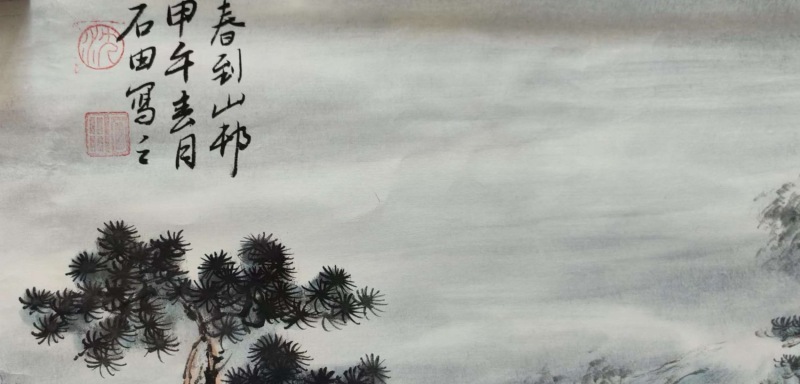 春到山邨
甲午春月
石田寫之
沈